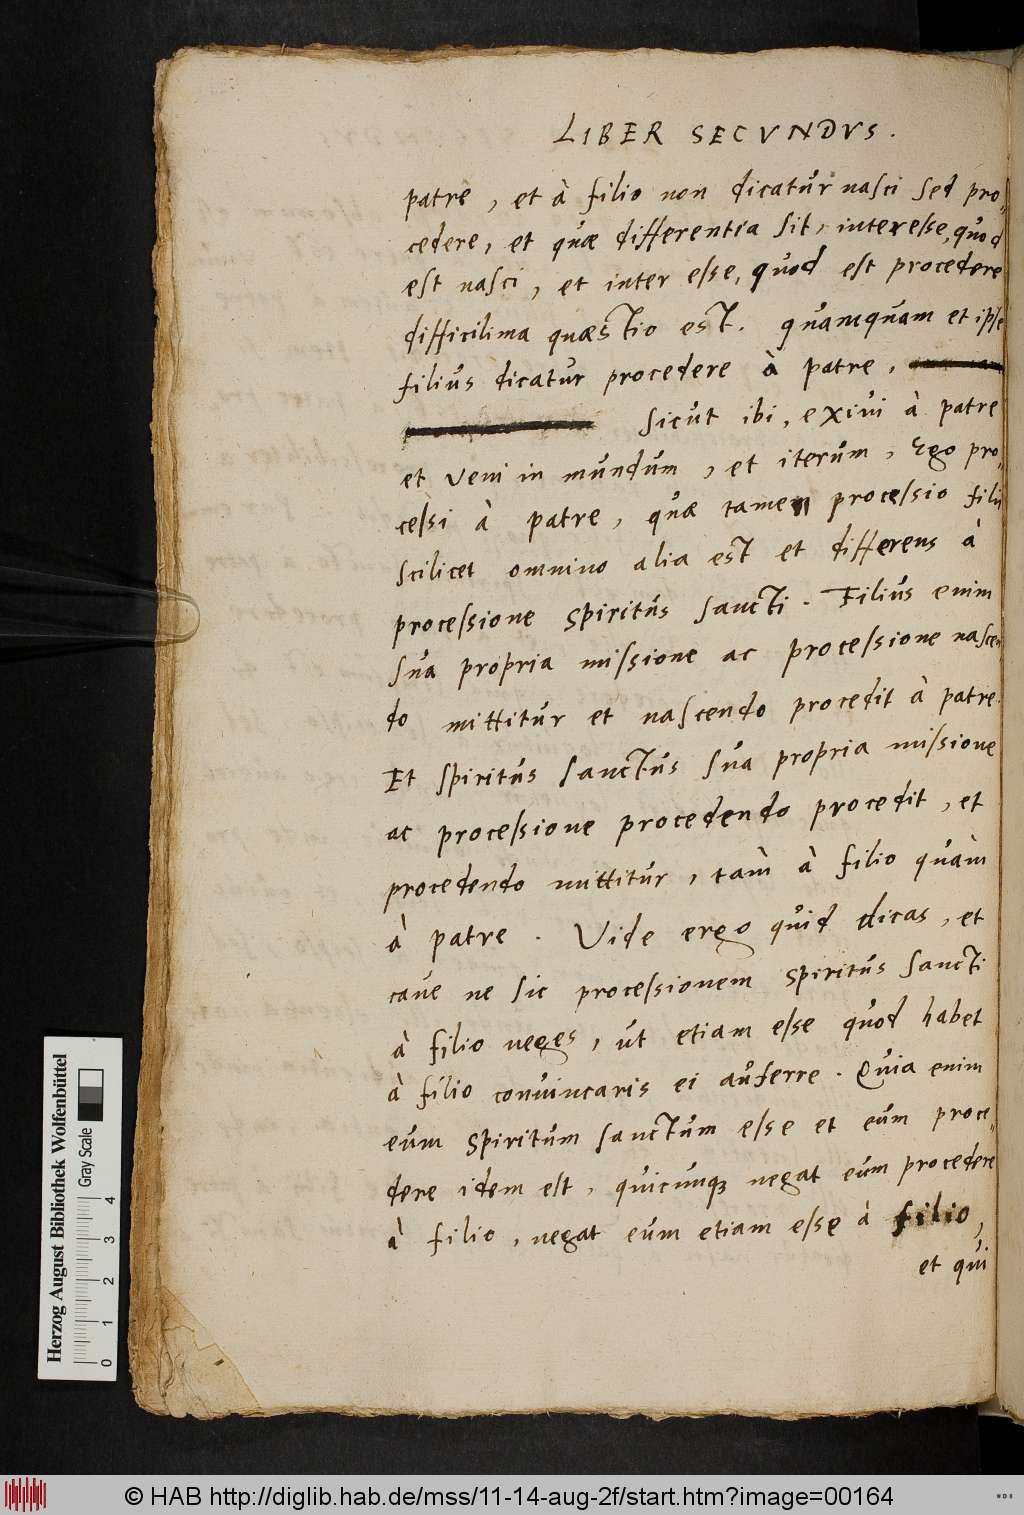 LIBER SECVNDVS.
patre, et à filio non dicatur nasci sed pro„
cedere, et quæ differentia sit, interesse, quod
est nasci, et inter esse, quod est procedere
difficilima quæstio est. quamquam et ipse
filius dicatur procedere à patre,
sicut ibi, exivi à patre
et veni in mundum, et iterum, Ego pro„
cessi à patre, quæ tamen processio filii
scilicet omnino alia est et differens à
processione spiritus sancti. Filius enim
sua propria missione ac processione nascen
do mittitur et nascendo procedit à patre.
Et spiritus sanctus sua propria missione
ac processione procedendo procedit, et
procedendo mittitur, tàm à filio quàm
à patre. Vide ergo quid dicas, et
cave ne sic processionem spiritus sancti
à filio neges, ut etiam esse quod habet
à filio convincaris ei auferre. Quia enim
eum spiritum sanctum esse et eum proce„
dere idem est, quicunq; negat eum procedere
à filio, negat eum etiam esse à filio,
et qui
Herzog August Bibliothek Wolfenbüttel
Gray Scale
0 1 2 3 4
© HAB http://diglib.hab.de/mss/11-14-aug-2f/start.htm?image=00164